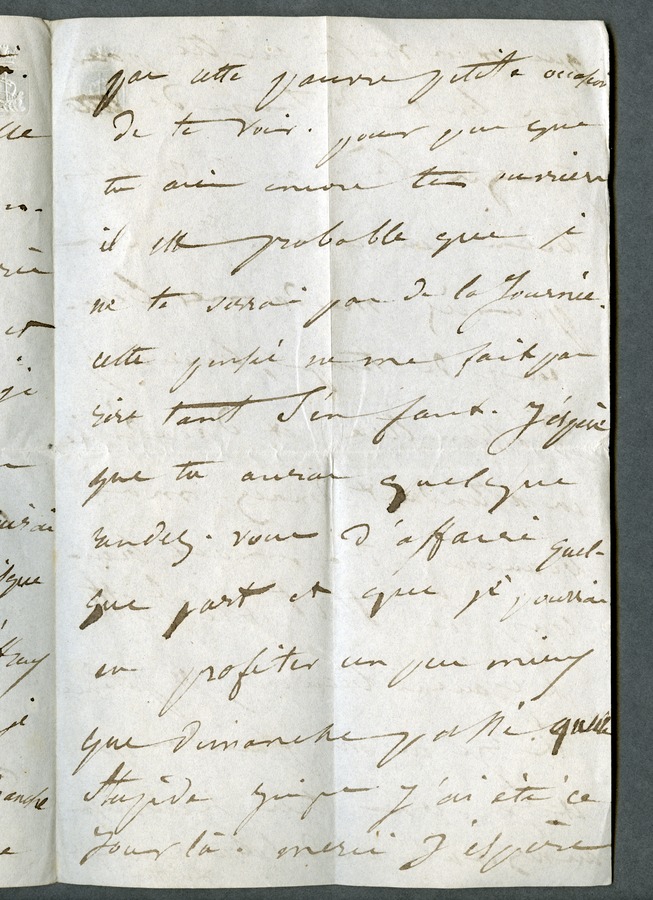 que cette pauvre petite occasion
de te voir. pour peu que
tu aie encore tes ouvriers
il est probable que je
ne te verrai pas de la Journée.
cette pensé ne me fait pas
rire tant S'en faut. J'éspère
que tu auras quelque
rendez-vous d'affaire quel-
que part et que je pourrai
en profiter un peu mieux
que dimanche passé. quelle
Stupide j'ai été ce
Jour là. merci J'espère